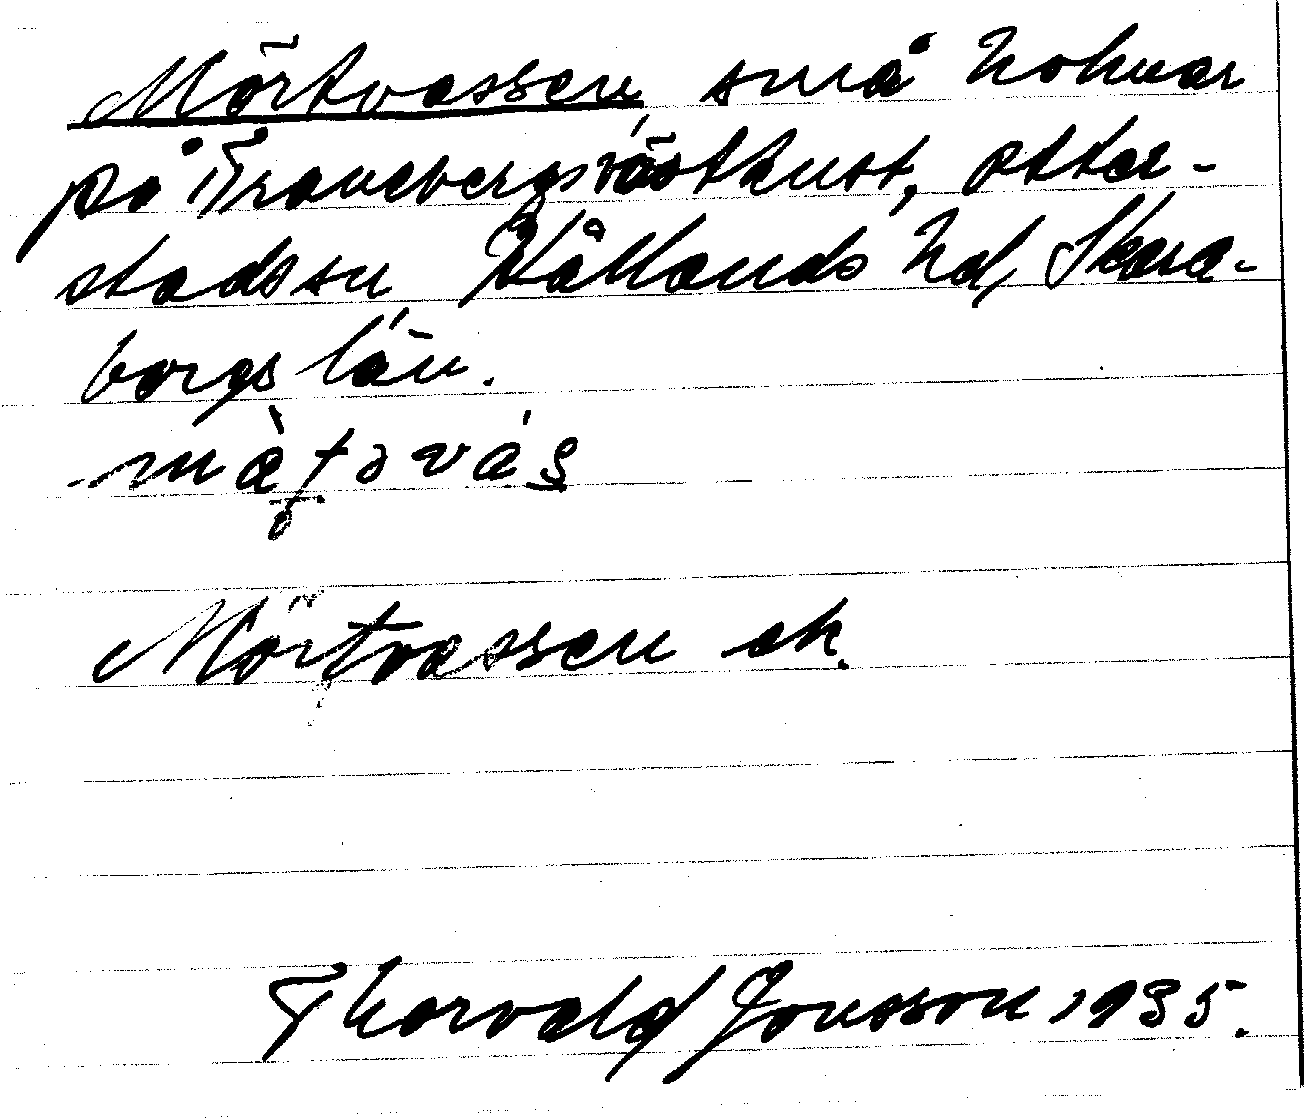 Mörtvassen, små holmar
på Traneberg västkust, Otter-
stads sn, Kållands hd, Skara-
borgs län.
Mörtvassen ek.
Thorvald Jonsson, 1935.